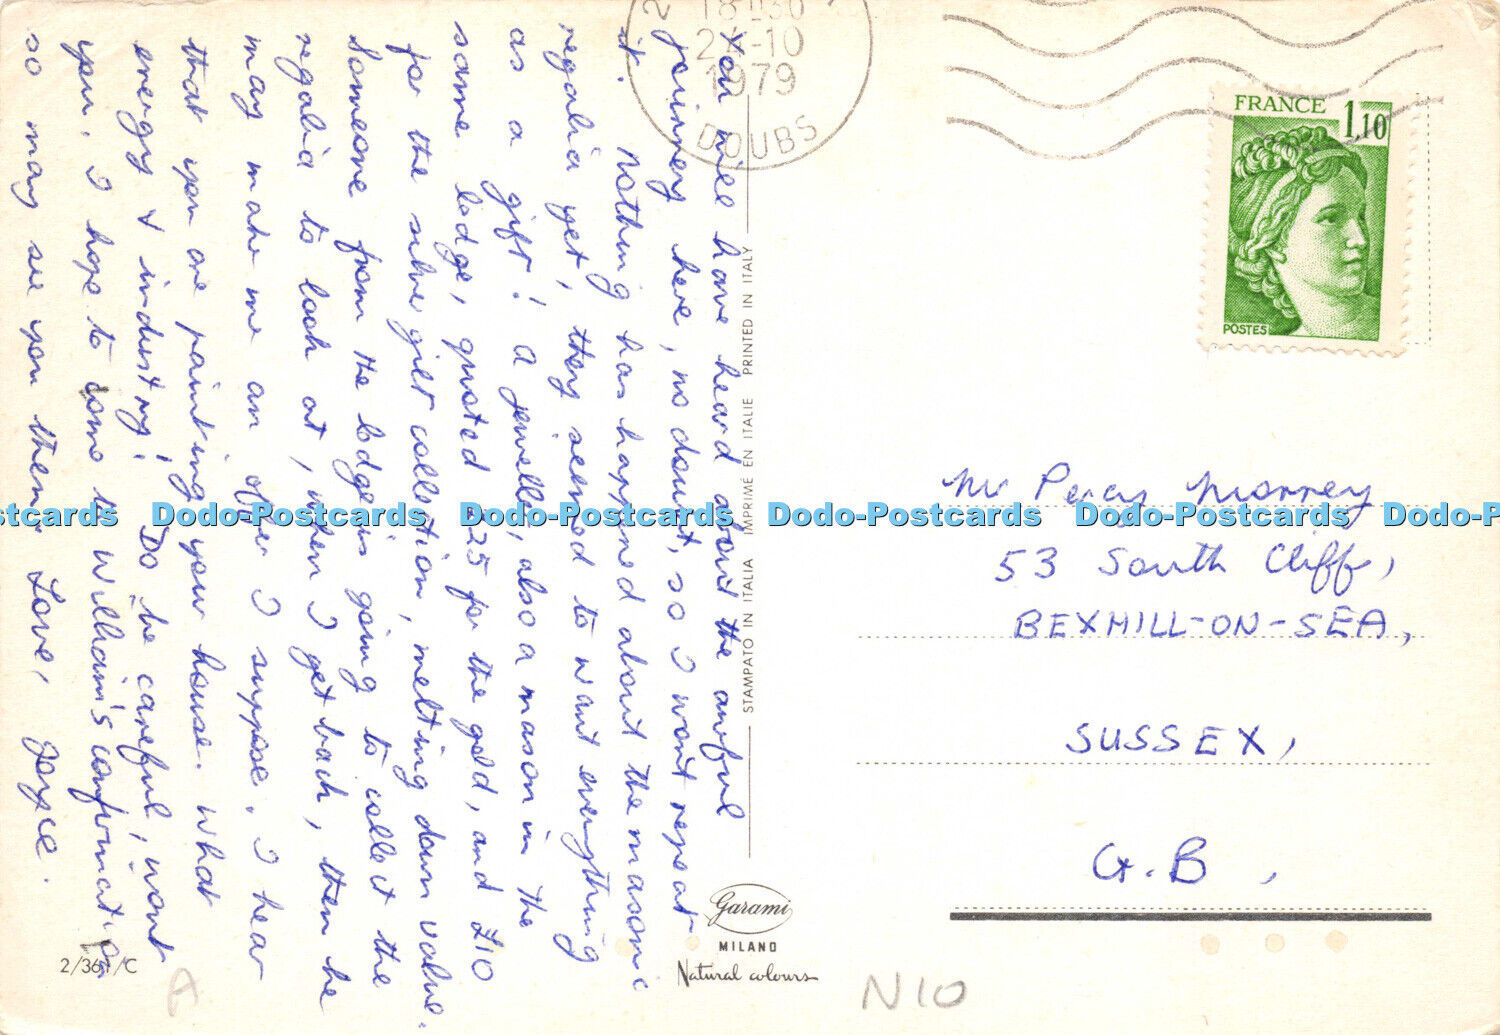 You will have heard about the awful
journey here, no doubt, so I won't repeat
it. Nothing has happened about the masonic
regalia yet, they seemed to want everything
as a gift! A jeweller, also a mason in the
same lodge, quoted £25 for the gold, and £10
for the silver gilt collection, melting down value.
Someone from the lodge is going to collect the
regalia to look at, when I get back, then he
may make me an offer I suppose. I hear
that you are painting your house. What
energy & industry! Do be careful, wont
you. I hope to come to William's confirmation
so may see you then. Love, Joyce.
18-30
2 -10
1979
DOUBS
FRANCE
1,10
POSTES
Mr Percy Morrey
53 South Cliff,
BEXHILL-ON-SEA,
SUSSEX,
G.B,
STAMPATO IN ITALIA IMPRIMÉ EN ITALIE PRINTED IN ITALY
Garami
MILANO
Natural colours
2/361/C
A
N10
Dodo-Postcards Dodo-Postcards Dodo-Postcards Dodo-Postcards